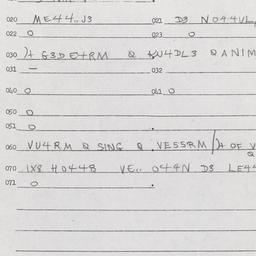 020 ME44..J3 021 D3 NO44VL,
022 0 023 0
030 G3DE4RM Q 4U4DL3 Q ANIM
031 — 032
040 0 041 0
050 0
051 0
060 VU4RM Q SING Q . VE55RM OF V
070 1X8 H0448 VE.. 044N D3 LE44
072 0